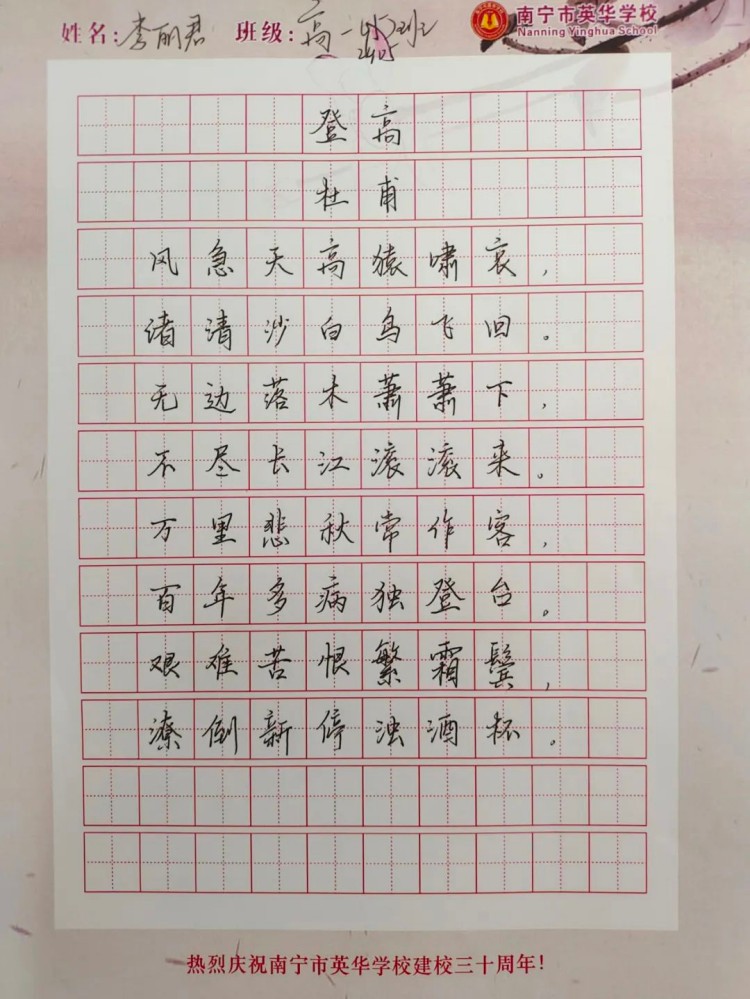 姓名:李丽君 班级:高一 班
南宁市英华学校
Nanning Yinghua School
登高
杜甫
风急天高猿啸哀,
渚清沙白鸟飞回。
无边落木萧萧下,
不尽长江滚滚来。
万里悲秋常作客,
百年多病独登台。
艰难苦恨繁霜鬓,
潦倒新停浊酒杯。
热烈庆祝南宁市英华学校建校三十周年!